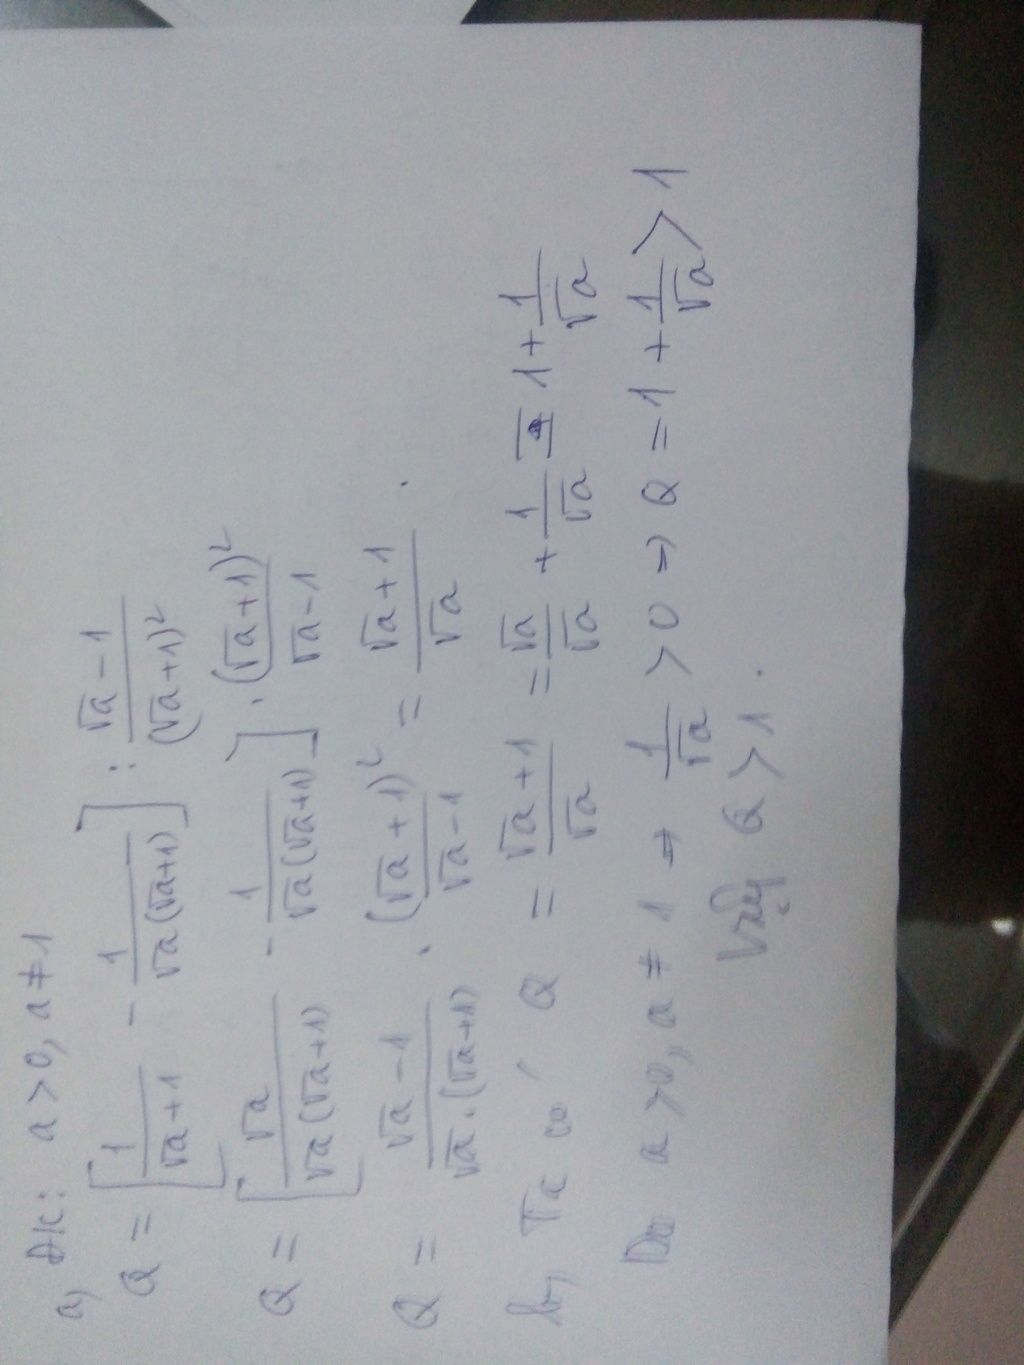 a, Đk: a > 0, a ≠ 1
Q = [1/(√a+1) - 1/(√a(√a+1))] : (√a-1)/(√a+1)²
Q = [√a/(√a(√a+1)) - 1/(√a(√a+1))] . (√a+1)²/(√a-1)
Q = (√a-1)/(√a.(√a+1)) . (√a+1)²/(√a-1) = (√a+1)/√a .
b, Ta có Q = (√a+1)/√a = √a/√a + 1/√a = 1 + 1/√a
Do a > 0, a ≠ 1 ⇒ 1/√a > 0 ⇒ Q = 1 + 1/√a > 1
Vậy Q > 1 .